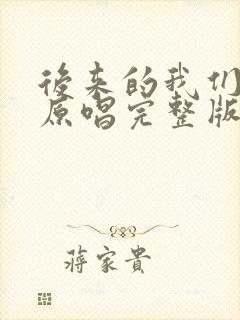 後来的我们
原唱完整版
蔣家貴